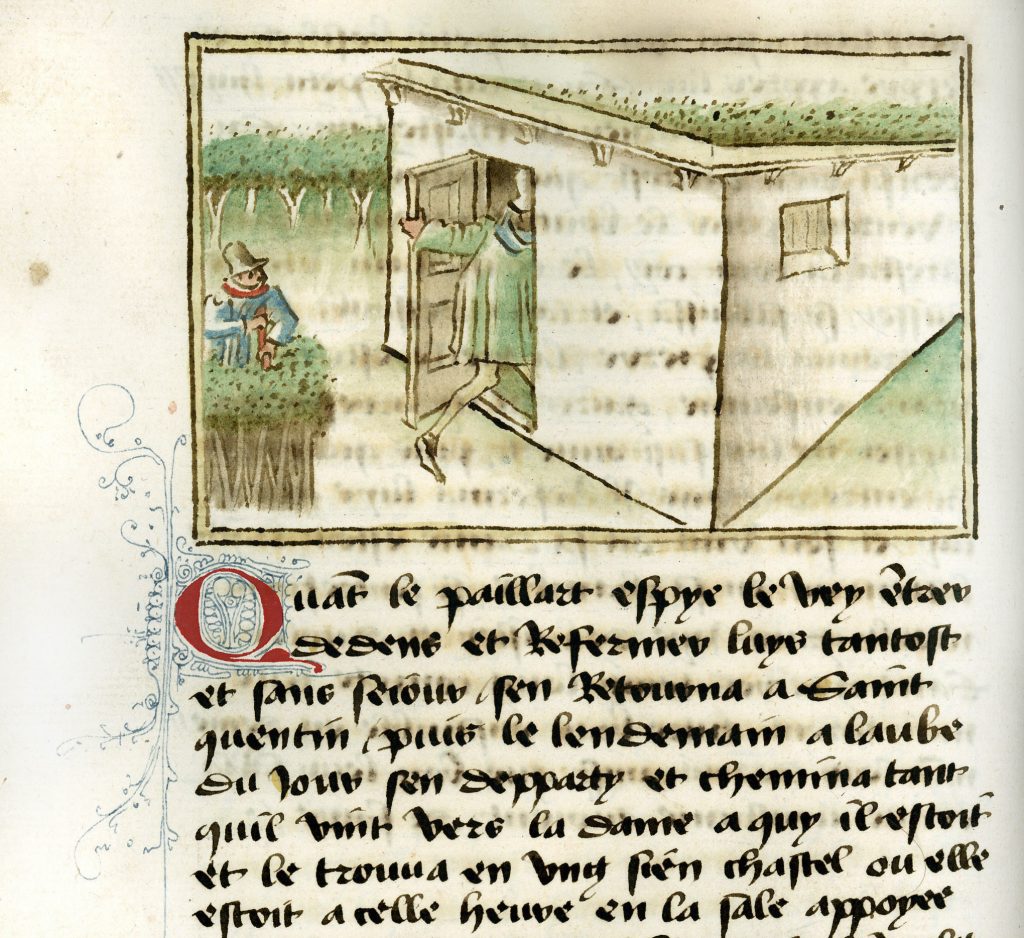 Quāt le paillart espye le vey ētrer
dedens et Refermer luys tantost
et sans seiour sen Retourna a Saint
quentin / puis le lendemain a laube
du Jour sen depparty et chemina tant
quil vint vers la dame a quy il estoit
et le trouua en vng sien chastel ou elle
estoit a celle heure en la sale appoyee